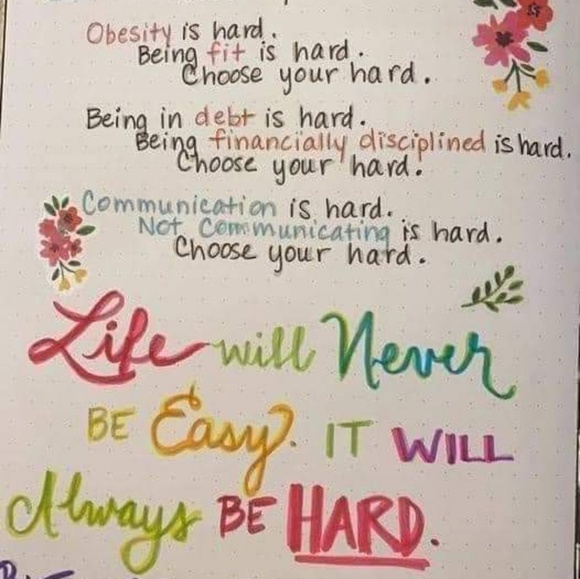 Obesity is hard.
Being fit is hard.
Choose your hard.
Being in debt is hard.
Being financially disciplined is hard.
Choose your hard.
Communication is hard.
Not Communicating is hard.
Choose your hard.
Life will Never
BE Easy. IT WILL
Always BE HARD.